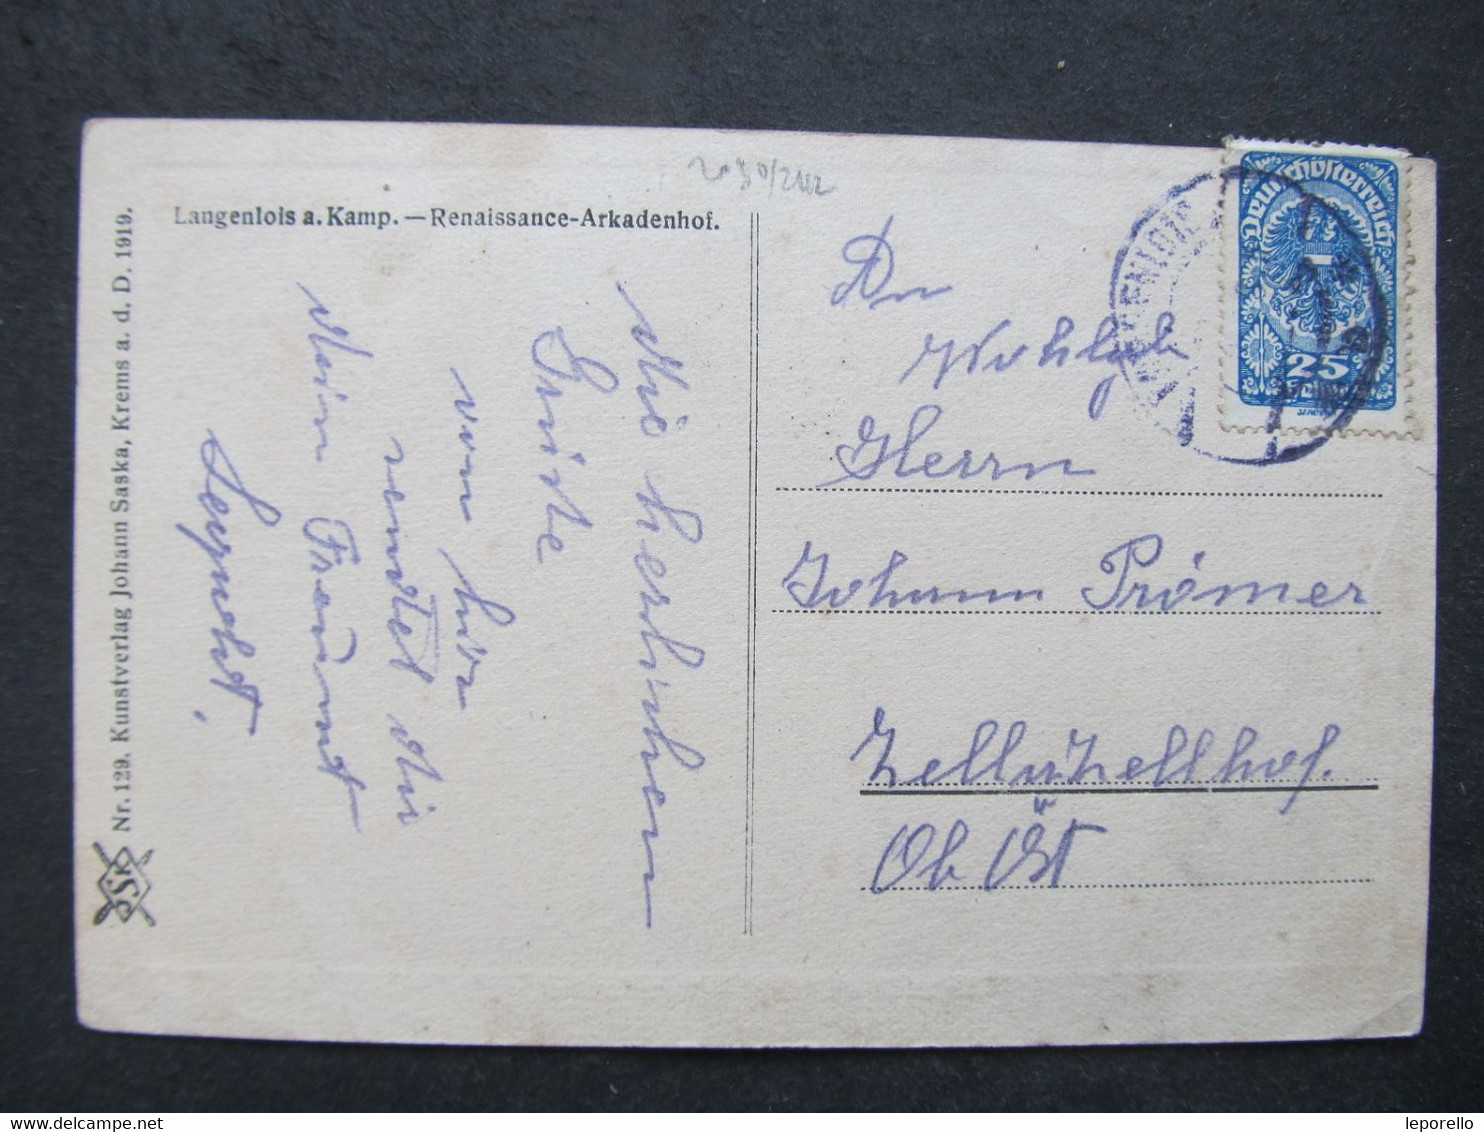 Langenlois a. Kamp. — Renaissance-Arkadenhof.
Nr. 129. Kunstverlag Johann Saska, Krems a. d. D. 1919.
JSK
Die herzlichen
Grüße
von hier
sendet dir
dein Freund
Leopold.
An
Wohlgeb
Herrn
Johann Prömer
Zell u Zellhof.
Ob Öst
Deutschösterreich
25
LANGENLOIS
leporello